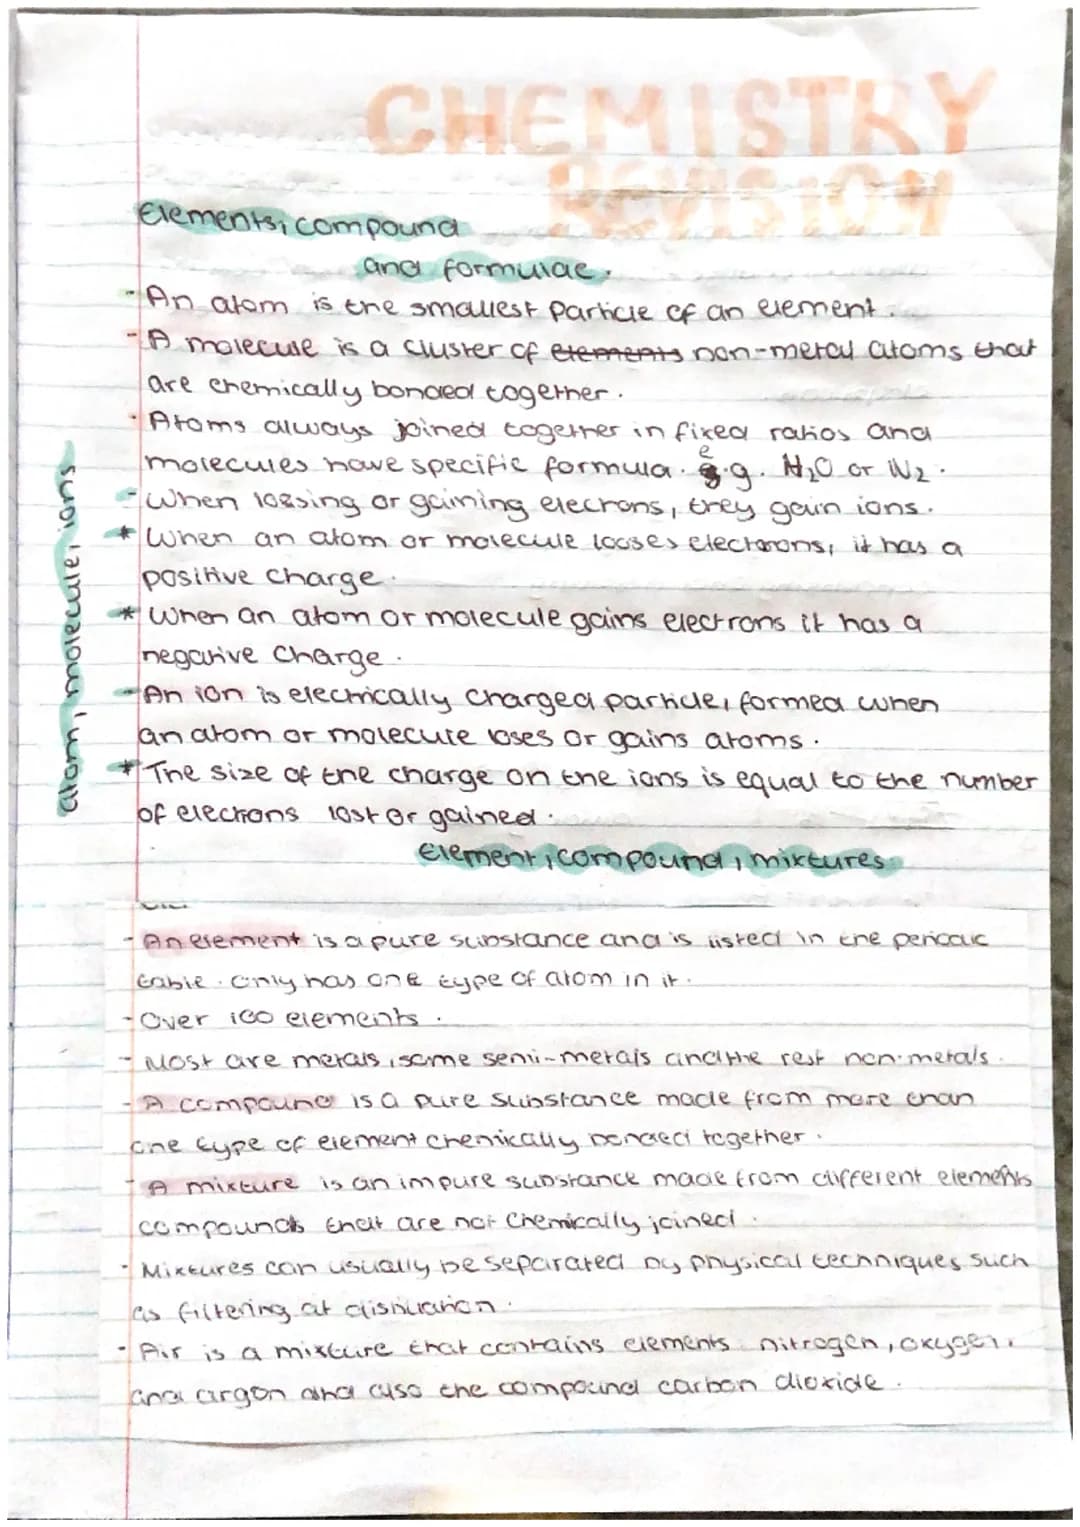 CHEMISTRY
REVISION
Elements, compound
and formulae.
- An atom is the smallest particle of an element.
- A molecule is a cluster of elements non-metal atoms that
are chemically bonded together.
- Atoms always joined together in fixed ratios and
molecules have specific formula. e.g. H₂O or N₂.
- When lossing or gaining electrons, they gain ions.
* When an atom or molecule looses electorons, it has a
positive charge.
* When an atom or molecule gains electrons it has a
negative charge.
- An ion is electrically charged particle, formed when
an atom or molecule loses or gains atoms.
* The size of the charge on the ions is equal to the number
of electrons lost or gained.
atom, molecule, ions
Element, compound, mixtures
- An element is a pure substance and is listed in the periodic
table. Only has one type of atom in it.
- Over 100 elements.
- Most are metals, some semi-metals and the rest non-metals.
- A compound is a pure substance made from more than
one type of element chemically bonded together.
- A mixture is an impure substance made from different elements
compounds that are not chemically joined.
- Mixtures can usually be separated by physical techniques such
as filtering at distillation.
- Air is a mixture that contains elements nitrogen, oxygen,
and argon and also the compound carbon dioxide.